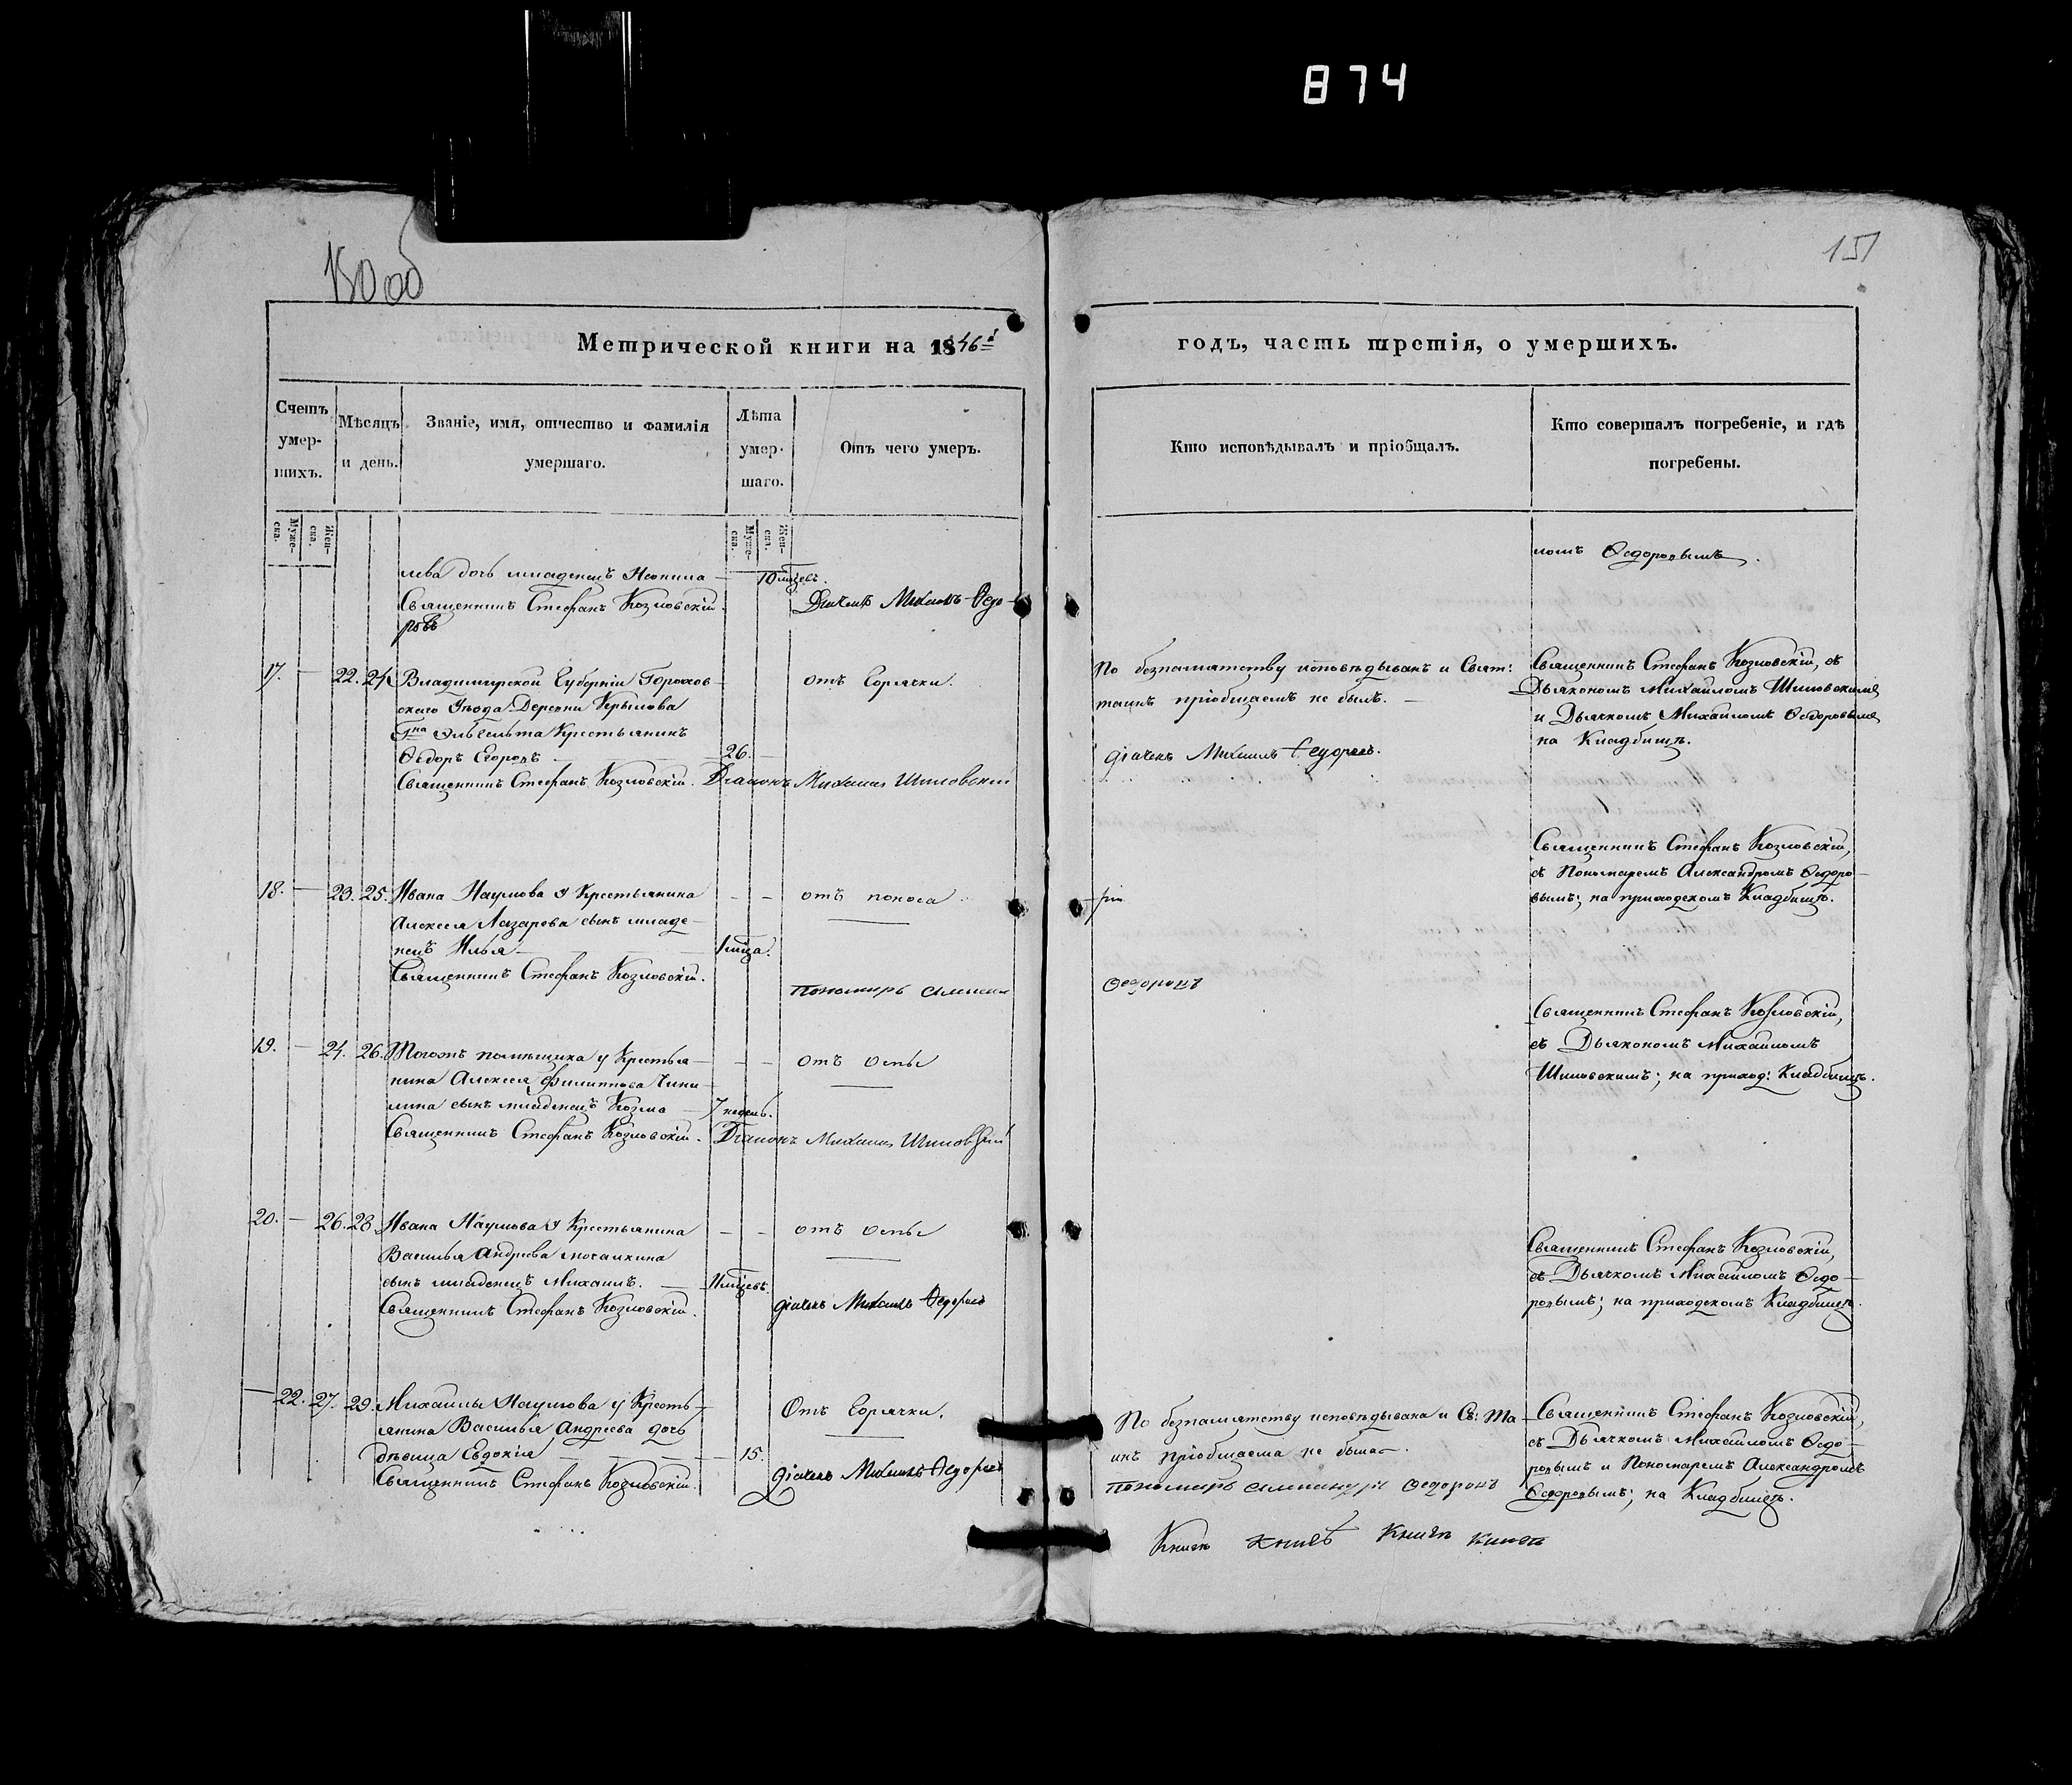 874
150 об
151
Метрической книги на 1846й
годъ, часть третія, о умершихъ.
Счетъ умер-шихъ.
Мѣсяцъ и день.
Званіе, имя, отчество и фамилія умершаго.
Лѣта умер-шаго.
Отъ чего умеръ.
Кто исповѣдывалъ и пріобщалъ.
Кто совершалъ погребеніе, и гдѣ погребены.
Муже-ска.
Жен-ска.
Муже-ска.
Жен-ска.
лева дочь младенецъ Неонила — 10 мѣцевъ.
Священникъ Стефанъ Козловскій. Дьячекъ Михаилъ Ѳедо-
ровъ
номъ Ѳедоровымъ.
17. — 22. 24. Владимирской Губерніи Горохов-
скаго Уѣзда Деревни Крылова
Гна Крестьянинъ
Ѳедоръ Егоровъ — 26. —
отъ Горячки.
Священникъ Стефанъ Козловскій. Діаконъ Михаилъ Шиловскій
По безпамятству исповѣдыванъ и Свят:
таинъ пріобщаемъ не былъ. —
дьячекъ Михаилъ Федоровъ.
Священникъ Стефанъ Козловскій, съ
Дьякономъ Михаиломъ Шиловскимъ
и Дьячкомъ Михайломъ Ѳедоровымъ
на Кладбищѣ.
18. — 23. 25. Ивана Наумова у Крестьянина
Алексея Лазарева сынъ младе-
нецъ Илья — 1 мѣца.
отъ поноса
Священникъ Стефанъ Козловскій.
Пономарь Алексан
Ѳедоровъ
Священникъ Стефанъ Козловскій,
съ Пономаремъ Александромъ Ѳедоро-
вымъ; на приходскомъ Кладбищѣ.
19. — 24. 26. Тогожъ помѣщика у Крестья-
нина Алексея Филиппова
сынъ младенецъ Козма — 7 недель.
отъ оспы
Священникъ Стефанъ Козловскій. Діаконъ Михаилъ Шиловскій
Священникъ Стефанъ Козловскій,
съ Дьякономъ Михаиломъ
Шиловскимъ; на приход: Кладбищѣ.
20. — 26. 28. Ивана Наумова у Крестьянина
Василья Андреева Мочалкина
сынъ младенецъ Михаилъ. — 11 мѣцевъ.
отъ оспы
Священникъ Стефанъ Козловскій. дьячекъ Михаилъ Ѳедоровъ
Священникъ Стефанъ Козловскій,
съ Дьячкомъ Михаиломъ Ѳедо-
ровымъ; на приходскомъ Кладбищѣ.
— 22. 27. 29. Михаилы Наумова у Кресть-
янина Василья Андреева дочь
дѣвица Евдокія — 15.
Отъ Горячки.
Священникъ Стефанъ Козловскій. дьячекъ Михаилъ Ѳедоровъ
По безпамятству исповѣдывана и Св: Та-
инъ пріобщаема не была.
Пономарь Александръ Ѳедоровъ
Священникъ Стефанъ Козловскій,
съ Дьячкомъ Михаиломъ Ѳедо-
ровымъ и Пономаремъ Александромъ
Ѳедоровымъ; на Кладбищѣ.